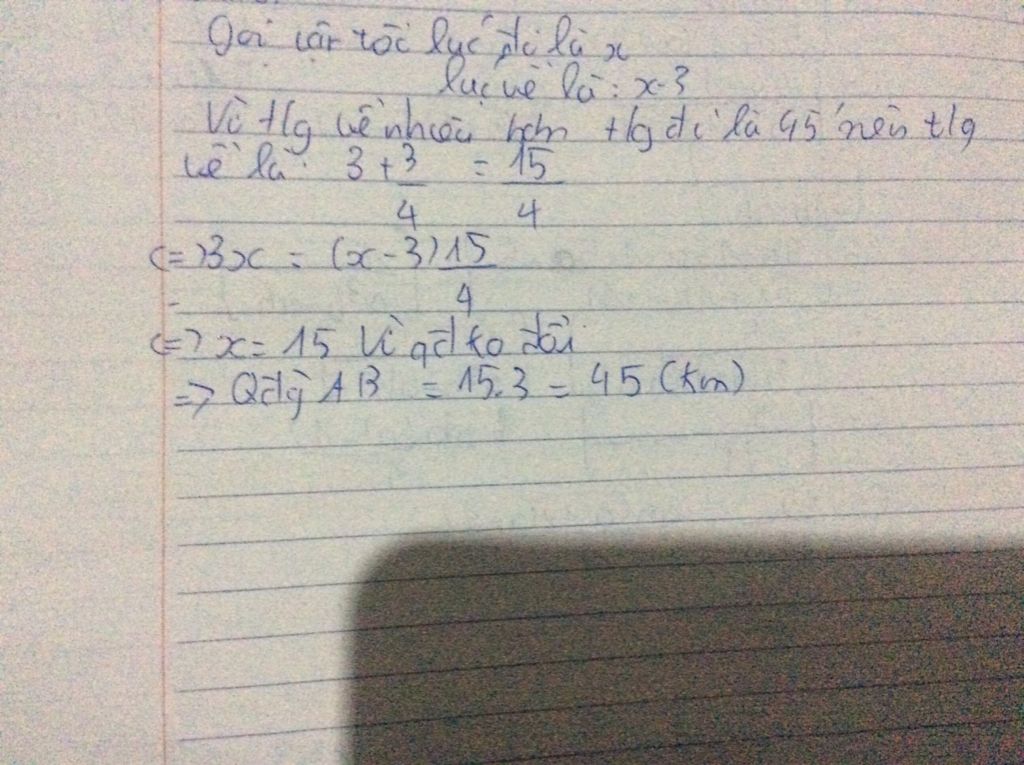 Gọi vận tốc lúc đi là x
lúc về là : x-3
Vì t/g về nhiều hơn t/g đi là 45' nên t/g
về là: 3 + 3/4 = 15/4
<=> 3x = (x-3) 15/4
<=> x = 15 Vì qđ ko đổi
=> Qđg AB = 15.3 = 45 (km)